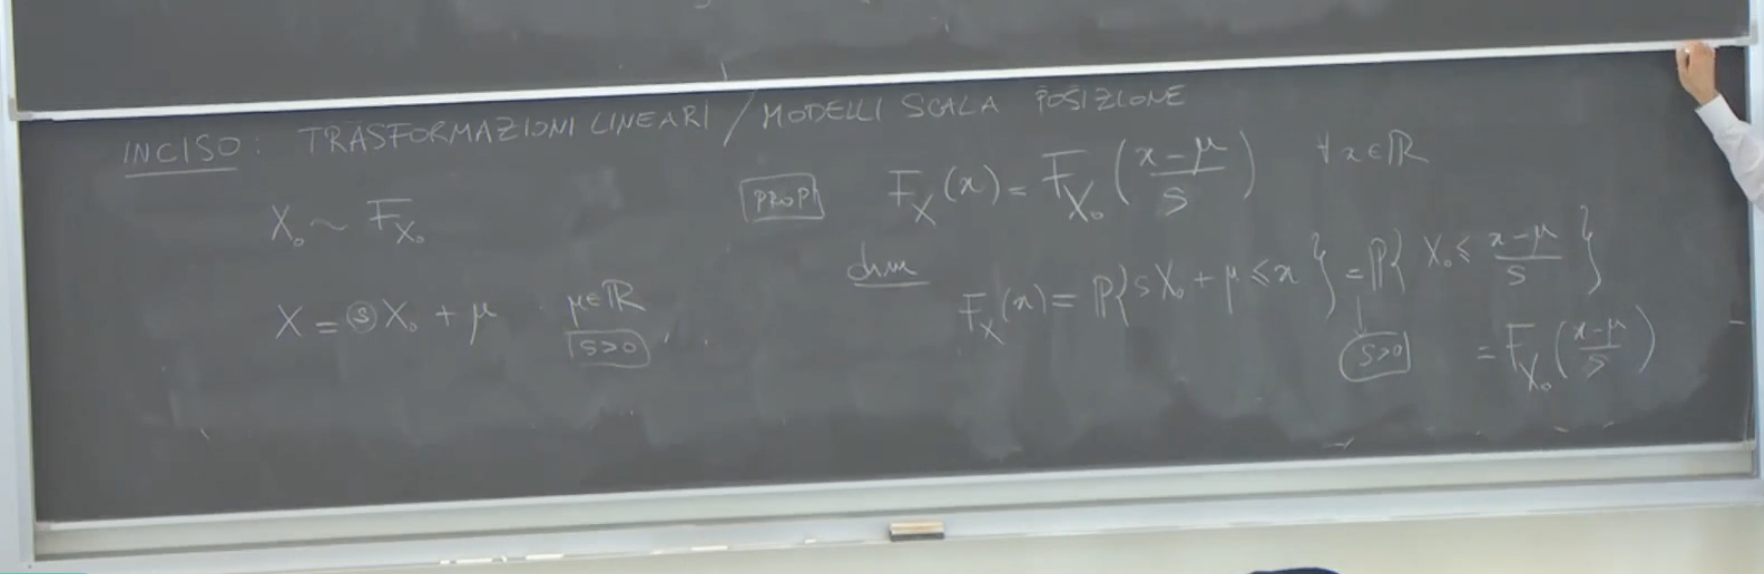 INCISO: TRASFORMAZIONI LINEARI / MODELLI SCALA POSIZIONE
X₀ ~ F_X₀
X = s X₀ + μ μ∈ℝ
s>0
PROP F_X(x) = F_X₀((x-μ)/s) ∀x∈ℝ
dim
F_X(x) = ℙ{sX₀ + μ ≤ x} = ℙ{X₀ ≤ (x-μ)/s}
s>0
= F_X₀((x-μ)/s)